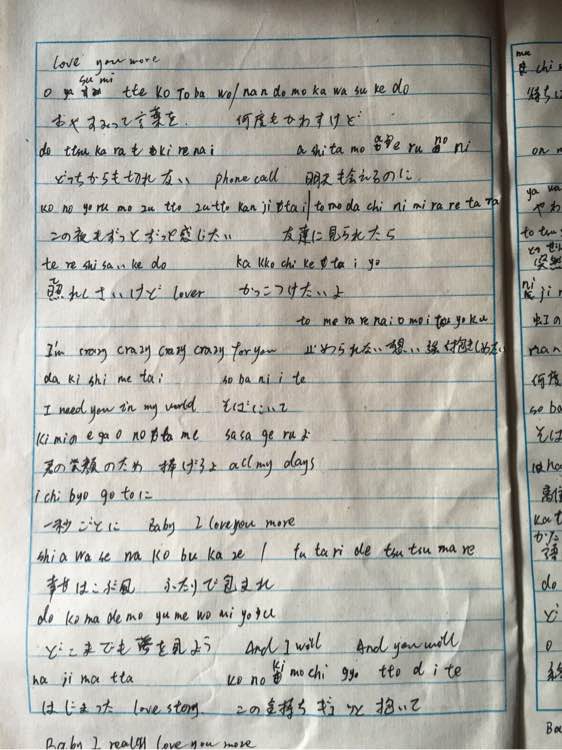 love you more
su mi
o ya tte ko to ba wo/nan do mo ka wa su ke do
おやすみって言葉を 何度もかわすけど
do ttsu ka ra mo ki re nai a shi ta mo e ru no ni
どっちからも切れない phone call 明日も会えるのに
ko no yo ru mo zu tto zu tto kan ji ta i/to mo da chi ni mi ra re ta ra
この夜もずっとずっと感じたい 友達に見られたら
te re shi sa i ke do ka kko chi ke ta i yo
照れしさいけど lover かっこつけたいよ
to me ra re nai o mo i tsu yo ku
I'm crazy crazy crazy crazy for you 止められない 想い 強く抱きしめたい
da ki shi me tai so ba ni i te
I need you in my world そばにいて
ki mi no e ga o no ta me sa sa ge ru よ
君の笑顔のため 捧げるよ all my days
i chi byo go to に
一秒ごとに Baby I love you more
shi a wa se na ko bu ka ze / fu ta ri de tsu tsu ma re
幸せはこぶ風 ふたりで包まれ
do ko ma de mo yu me wo mi yo u
どこまでも夢を見よう And I will And you will
na ji ma tta ko no ki mo chi gyo tto d i te
はじまった love story. この気持ち ぎゅっと 抱いて
Baby I really love you more
mu
chi
待ち
on
ya wa
やわ
to tsu
突然
ni ji
虹の
nan
何度
so ba
そば
は na
離
ka ta
かた
語
do
ど
o
Ba